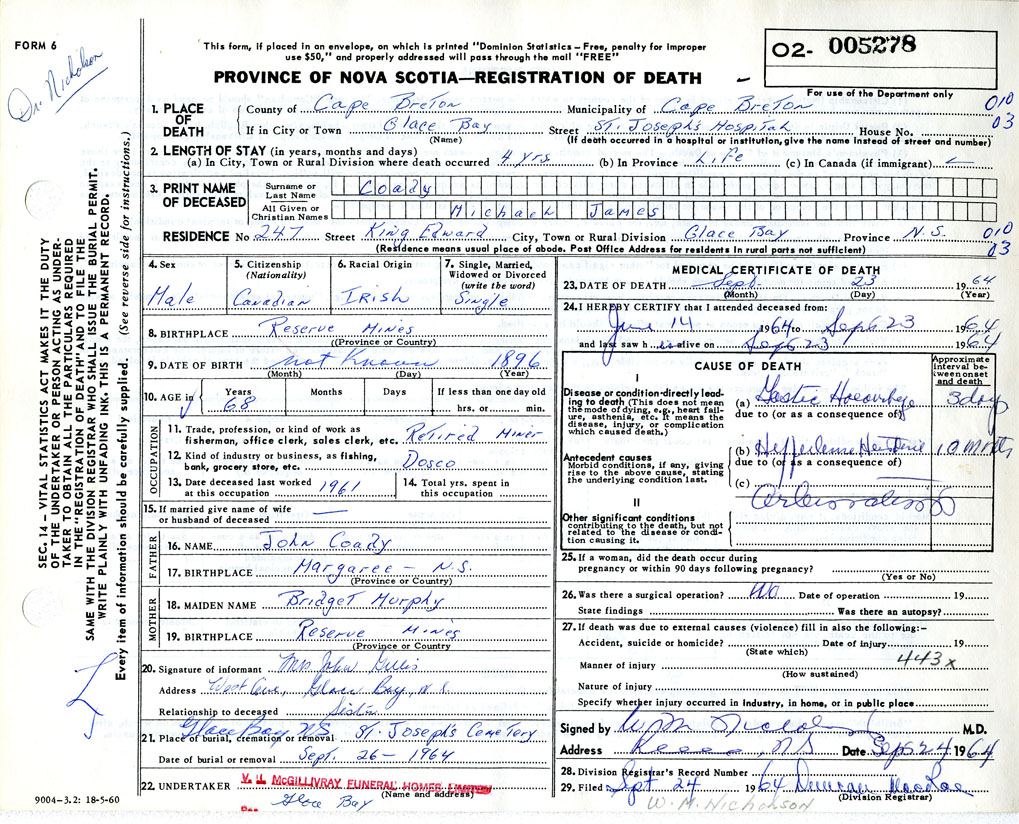 FORM 6
Dr. Nicholson
This form, if placed in an envelope, on which is printed "Dominion Statistics – Free, penalty for improper
use $50," and properly addressed will pass through the mail "FREE"
PROVINCE OF NOVA SCOTIA—REGISTRATION OF DEATH
02- 005278
For use of the Department only
SEC. 14 – VITAL STATISTICS ACT MAKES IT THE DUTY
OF THE UNDERTAKER OR PERSON ACTING AS UNDER-
TAKER TO OBTAIN ALL THE PARTICULARS REQUIRED
IN THE "REGISTRATION OF DEATH" AND TO FILE THE
SAME WITH THE DIVISION REGISTRAR WHO SHALL ISSUE THE BURIAL PERMIT.
WRITE PLAINLY WITH UNFADING INK. THIS IS A PERMANENT RECORD.
Every item of information should be carefully supplied. (See reverse side for instructions.)
1. PLACE OF DEATH
County of Cape Breton Municipality of Cape Breton 010
If in City or Town Glace Bay Street St. Joseph's Hospital House No. 03
(Name) (If death occurred in a hospital or institution, give the name instead of street and number)
2. LENGTH OF STAY (in years, months and days)
(a) In City, Town or Rural Division where death occurred 4 yrs (b) In Province Life (c) In Canada (if immigrant)
3. PRINT NAME OF DECEASED
Surname or Last Name Coady
All Given or Christian Names Michael James
RESIDENCE No 247 Street King Edward City, Town or Rural Division Glace Bay Province N.S. 010
(Residence means usual place of abode. Post Office Address for residents in rural parts not sufficient) 03
4. Sex
Male
5. Citizenship (Nationality)
Canadian
6. Racial Origin
Irish
7. Single, Married, Widowed or Divorced (write the word)
Single
8. BIRTHPLACE Reserve Mines
(Province or Country)
9. DATE OF BIRTH not Known 1896
(Month) (Day) (Year)
10. AGE in Years Months Days If less than one day old
68 hrs. or min.
OCCUPATION
11. Trade, profession, or kind of work as
fisherman, office clerk, sales clerk, etc. Retired Miner
12. Kind of industry or business, as fishing,
bank, grocery store, etc. Dosco
13. Date deceased last worked
at this occupation 1961
14. Total yrs. spent in
this occupation
15. If married give name of wife
or husband of deceased —
FATHER
16. NAME John Coady
17. BIRTHPLACE Margaree – N.S.
(Province or Country)
MOTHER
18. MAIDEN NAME Bridget Murphy
19. BIRTHPLACE Reserve Mines
(Province or Country
20. Signature of informant Mrs John Gillis
Address West Ave, Glace Bay, N.S.
Relationship to deceased Sister
21. Place of burial, cremation or removal Glace Bay NS St. Joseph's Cemetery
Date of burial or removal Sept. 26 – 1964
22. UNDERTAKER V. J. McGILLIVRAY FUNERAL HOMES LIMITED
(Name and address)
Glace Bay
9004–3.2: 18-5-60
MEDICAL CERTIFICATE OF DEATH
23. DATE OF DEATH Sept. 23 1964
(Month) (Day) (Year)
24. I HEREBY CERTIFY that I attended deceased from:
June 14 1964 to Sept 23 1964
and last saw h is alive on Sept 23 1964
CAUSE OF DEATH
Approximate interval between onset and death
I
Disease or condition directly leading to death (This does not mean
the mode of dying, e.g., heart failure, asthenia, etc. It means the
disease, injury, or complication
which caused death.)
(a) 3 days
due to (or as a consequence of)
Antecedent causes
Morbid conditions, if any, giving
rise to the above cause, stating
the underlying condition last.
(b) 10 months
due to (or as a consequence of)
(c)
II
Other significant conditions
contributing to the death, but not
related to the disease or condition causing it.
25. If a woman, did the death occur during
pregnancy or within 90 days following pregnancy?
(Yes or No)
26. Was there a surgical operation? No Date of operation 19
State findings Was there an autopsy?
27. If death was due to external causes (violence) fill in also the following:–
Accident, suicide or homicide? Date of injury 19
(State which) 443x
Manner of injury
(How sustained)
Nature of injury
Specify whether injury occurred in industry, in home, or in public place
Signed by W M Nicholson M.D.
Address NS Date Sept 24 1964
28. Division Registrar's Record Number
29. Filed Sept 24 1964 Duncan MacRae
(Division Registrar)
W. M. Nicholson